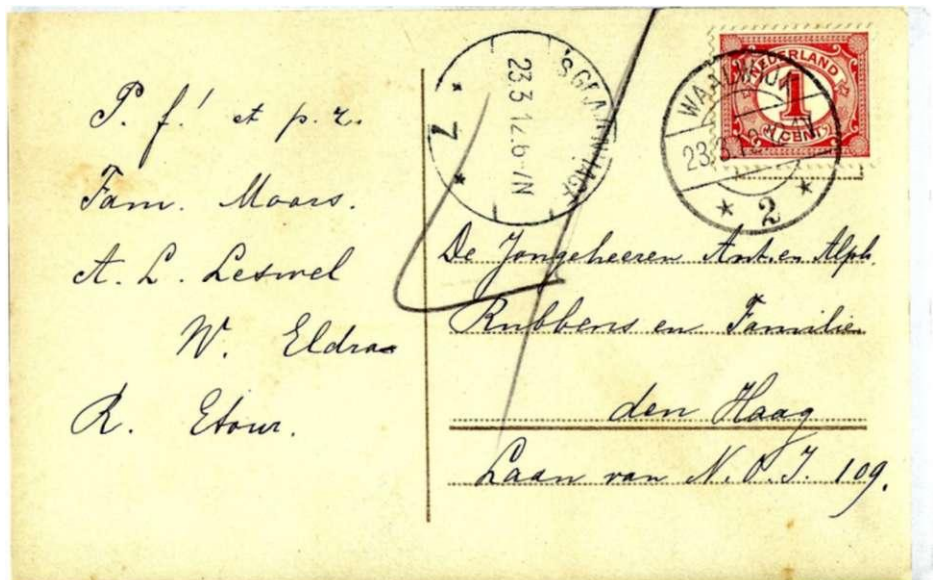 P. f! et p. r.
Fam. Moors.
A. L. Leswel
W. Eldra
R. Etour.
'S GRAVENHAGE
23.3.12.6-7N
7
NEDERLAND
1
CENT
WAALWIJK
23.3.12
2
De Jongeheeren Ant. en Alph.
Rubbens en Familie
den Haag
Laan van N. O. I. 109.